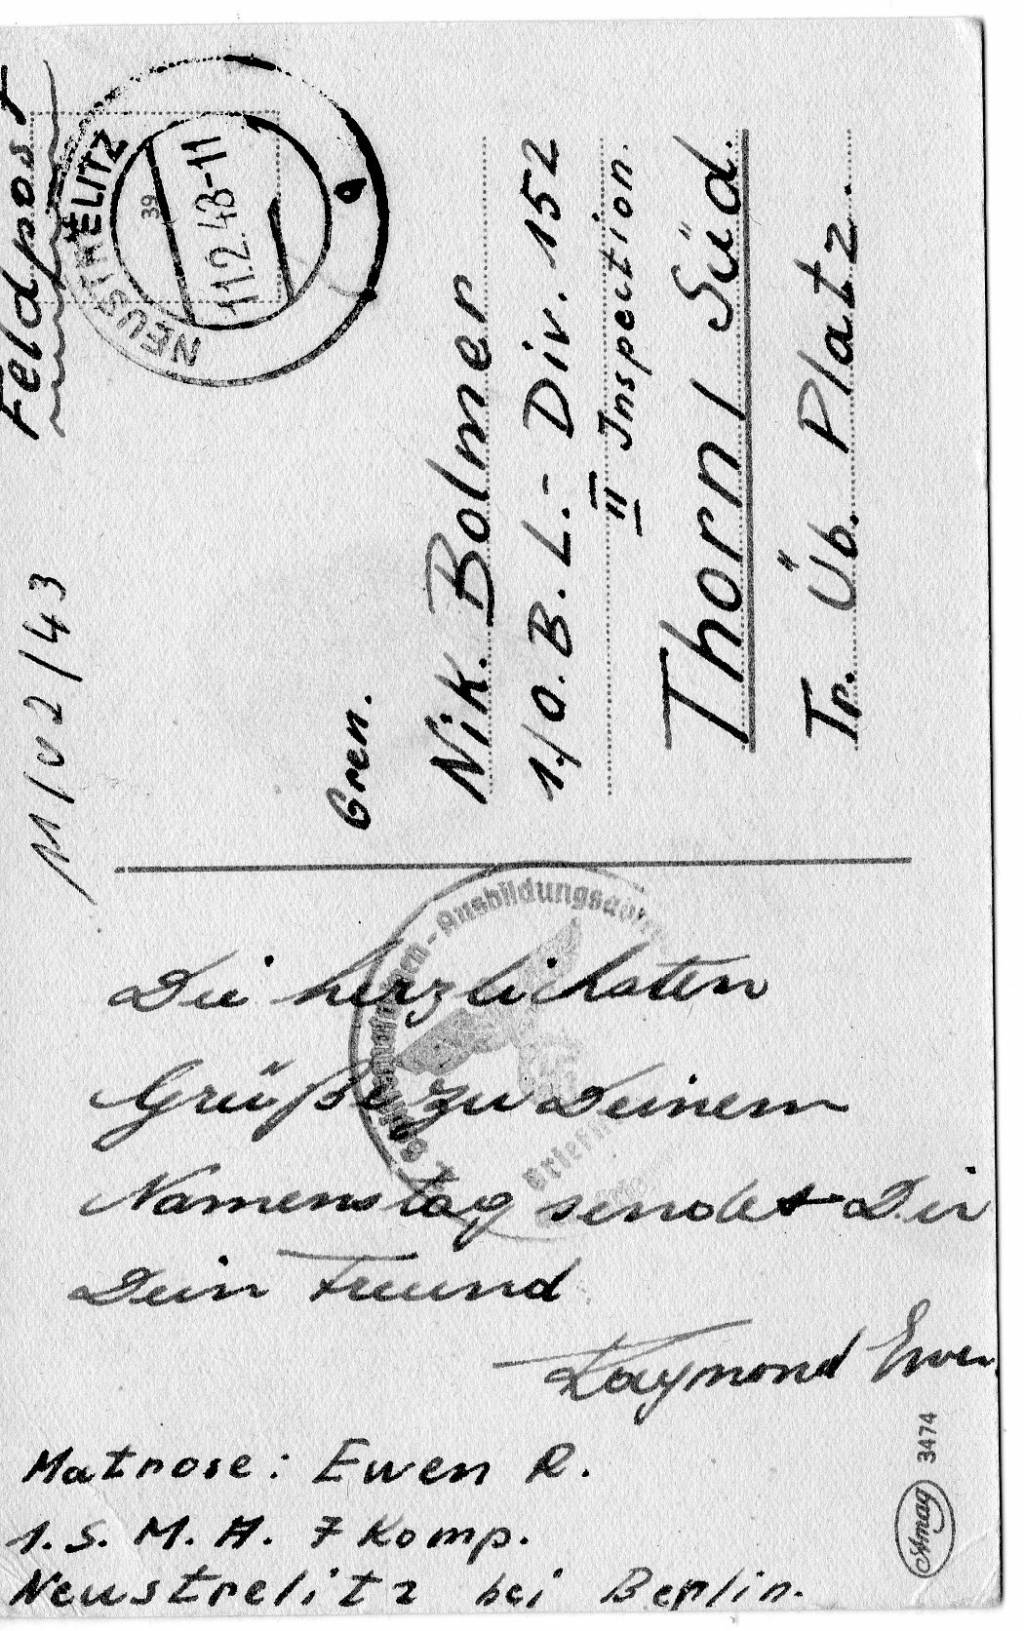 Feldpost
NEUSTRELITZ
39
11.2.43-11
a
11/02/43
Gren.
Nik. Bolmer
1/O.B.L.-Div. 152
II Inspection.
Thorn/Süd.
Tr. Üb. Platz.
-Ausbildungsabt
Die herzlichsten
Grüße zu Deinem
Namenstag sendet Dir
Dein Freund
Raymond Ewen
Matrose: Ewen R.
1. S. M. A. 7 Komp.
Neustrelitz bei Berlin.
Amag 3474